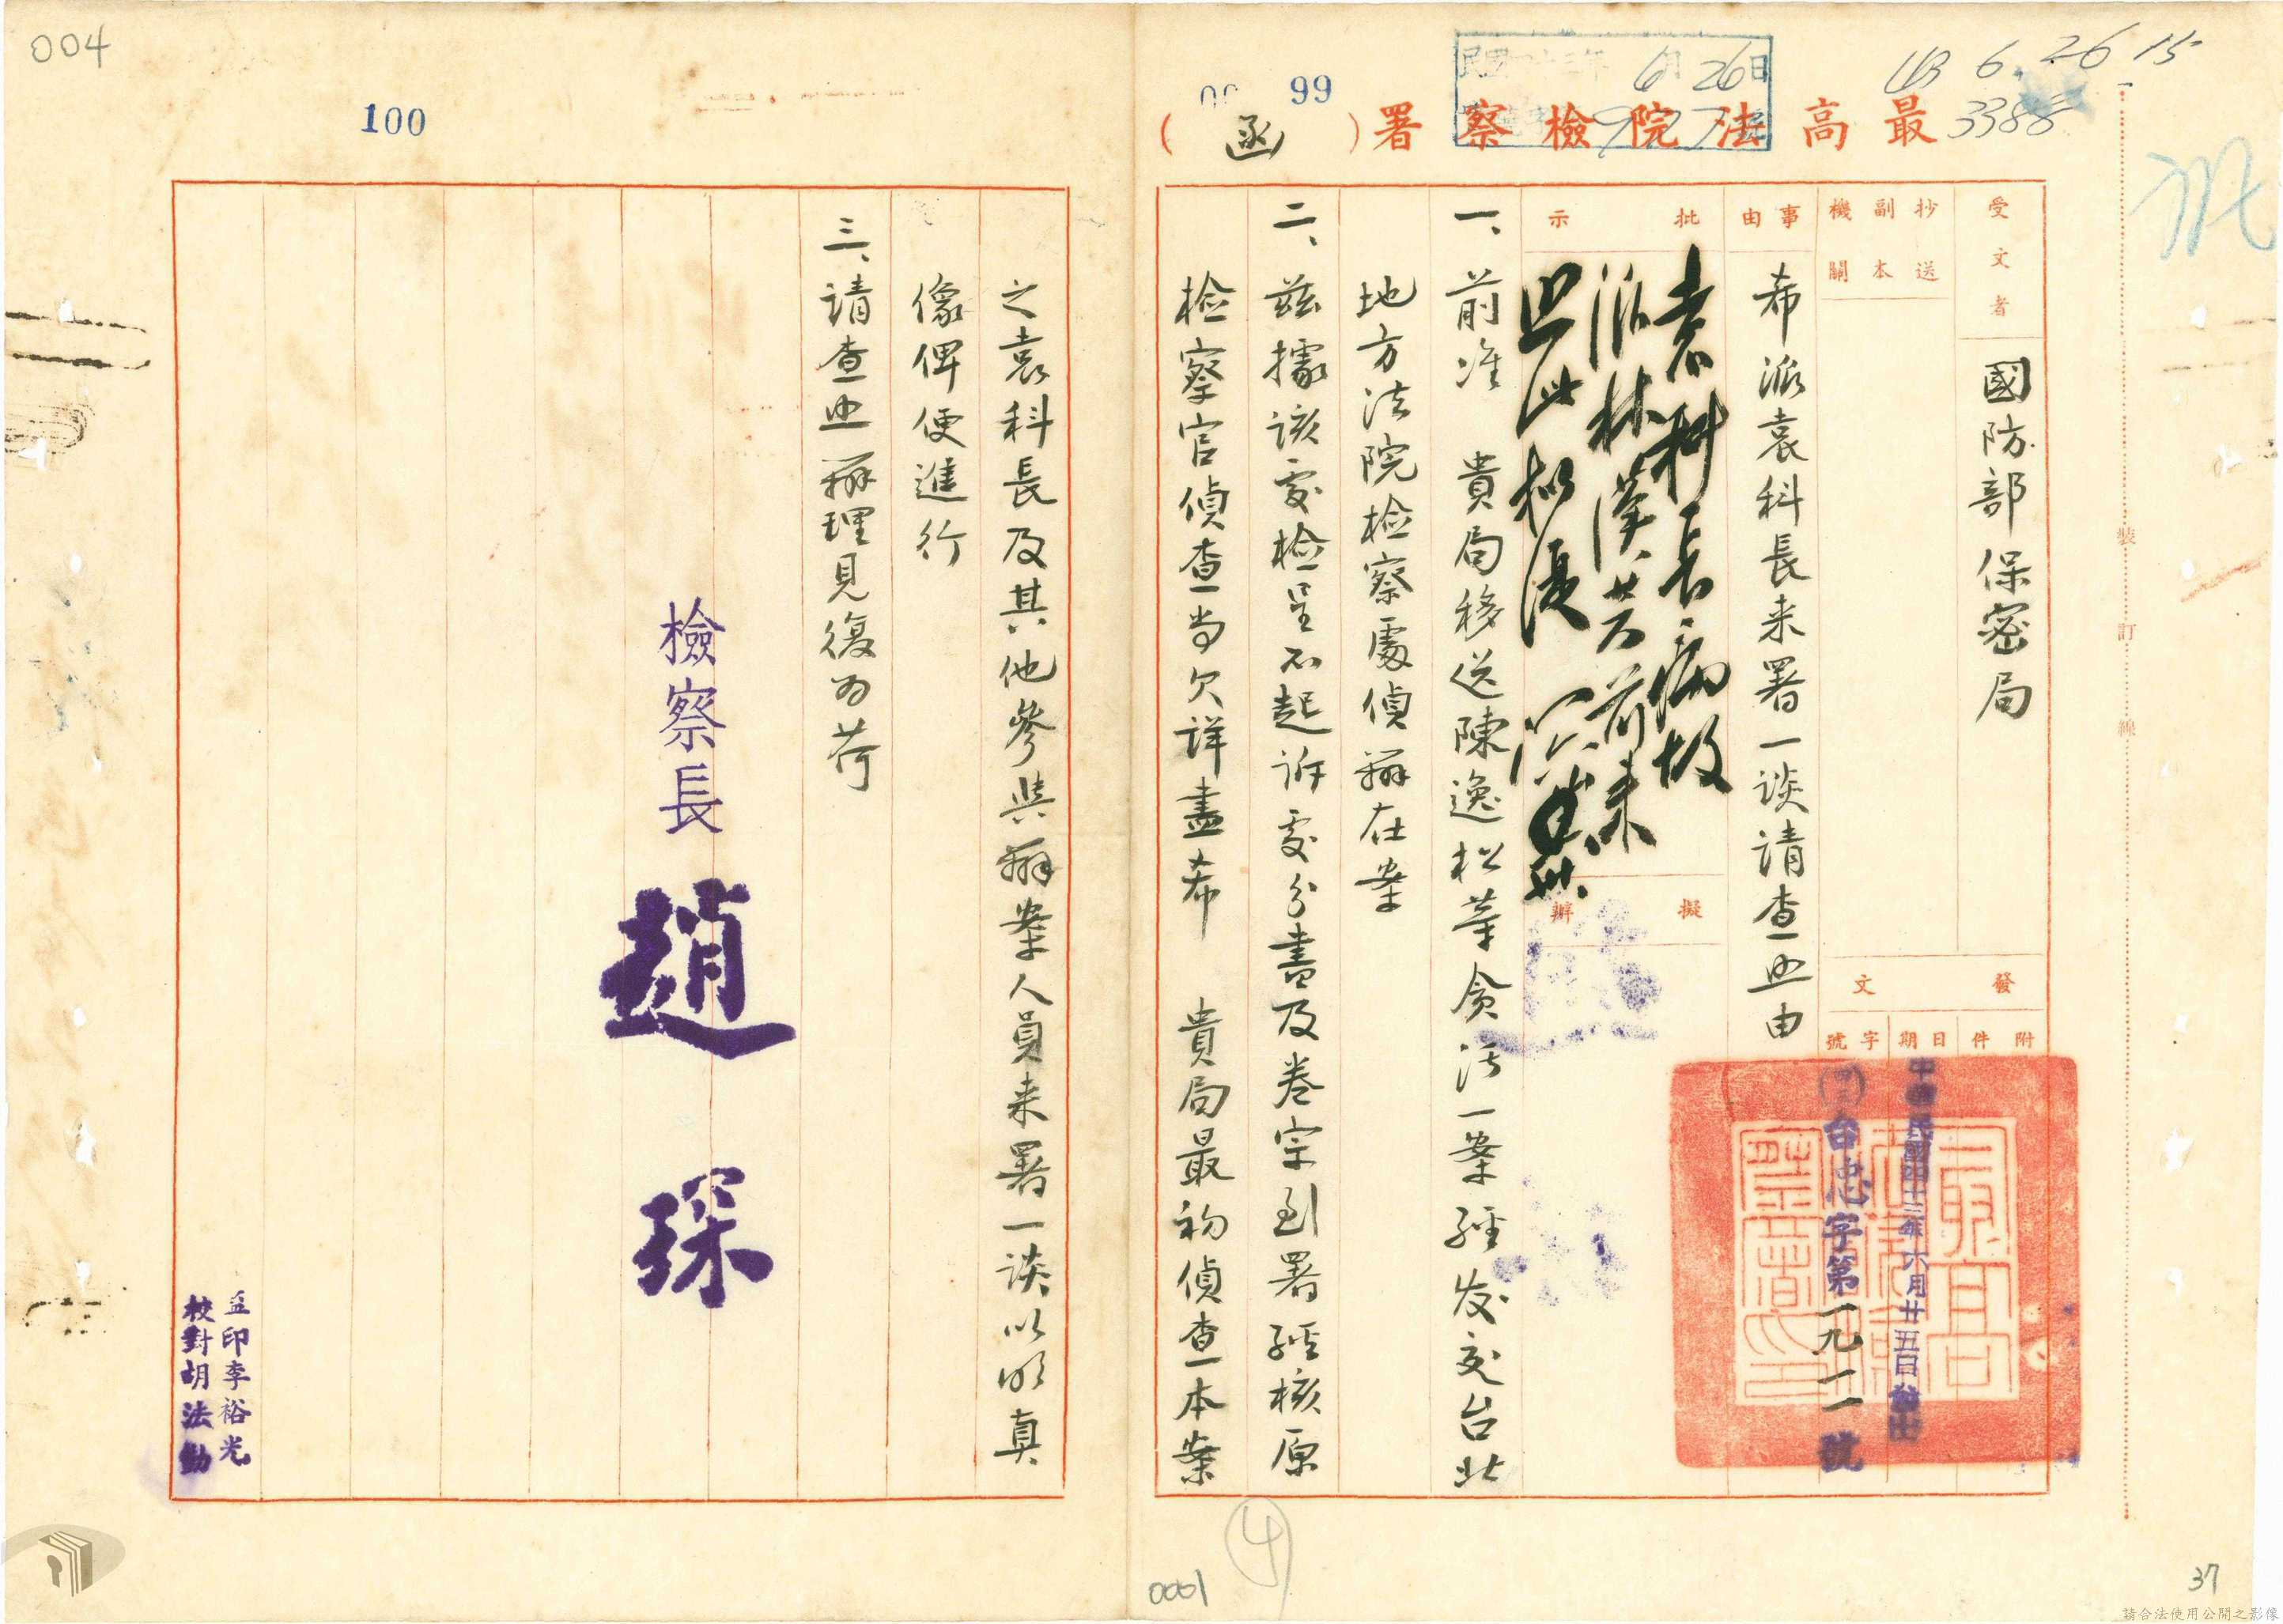 004
100
99
43 6. 26 15
3388
民國四十三年 6月26日
最高法院檢察署(函)
受文者
國防部保密局
抄送
副本
機關
發文
附件
日期
中華民國四十三年六月廿五日發出
字號
(43)台忠字第一九二一號
事由
希派袁科長来署一談請查照由
批示
袁科長病故
派林漢芳前来
照此擬復
擬辦
一、前准 貴局移送陳逸松等貪污一案經发交台北
地方法院检察處偵辦在案
二、兹據該處检呈不起訴處分書及卷宗到署經核原
检察官偵查尚欠详盡希 貴局最初偵查本案
之袁科長及其他參與辦案人員来署一談以明真
像俾便進行
三、请查照辦理見復为荷
檢察長 趙琛
監印李裕光
校對胡法勳
裝
訂
線
④
0001
37
請合法使用公開之影像